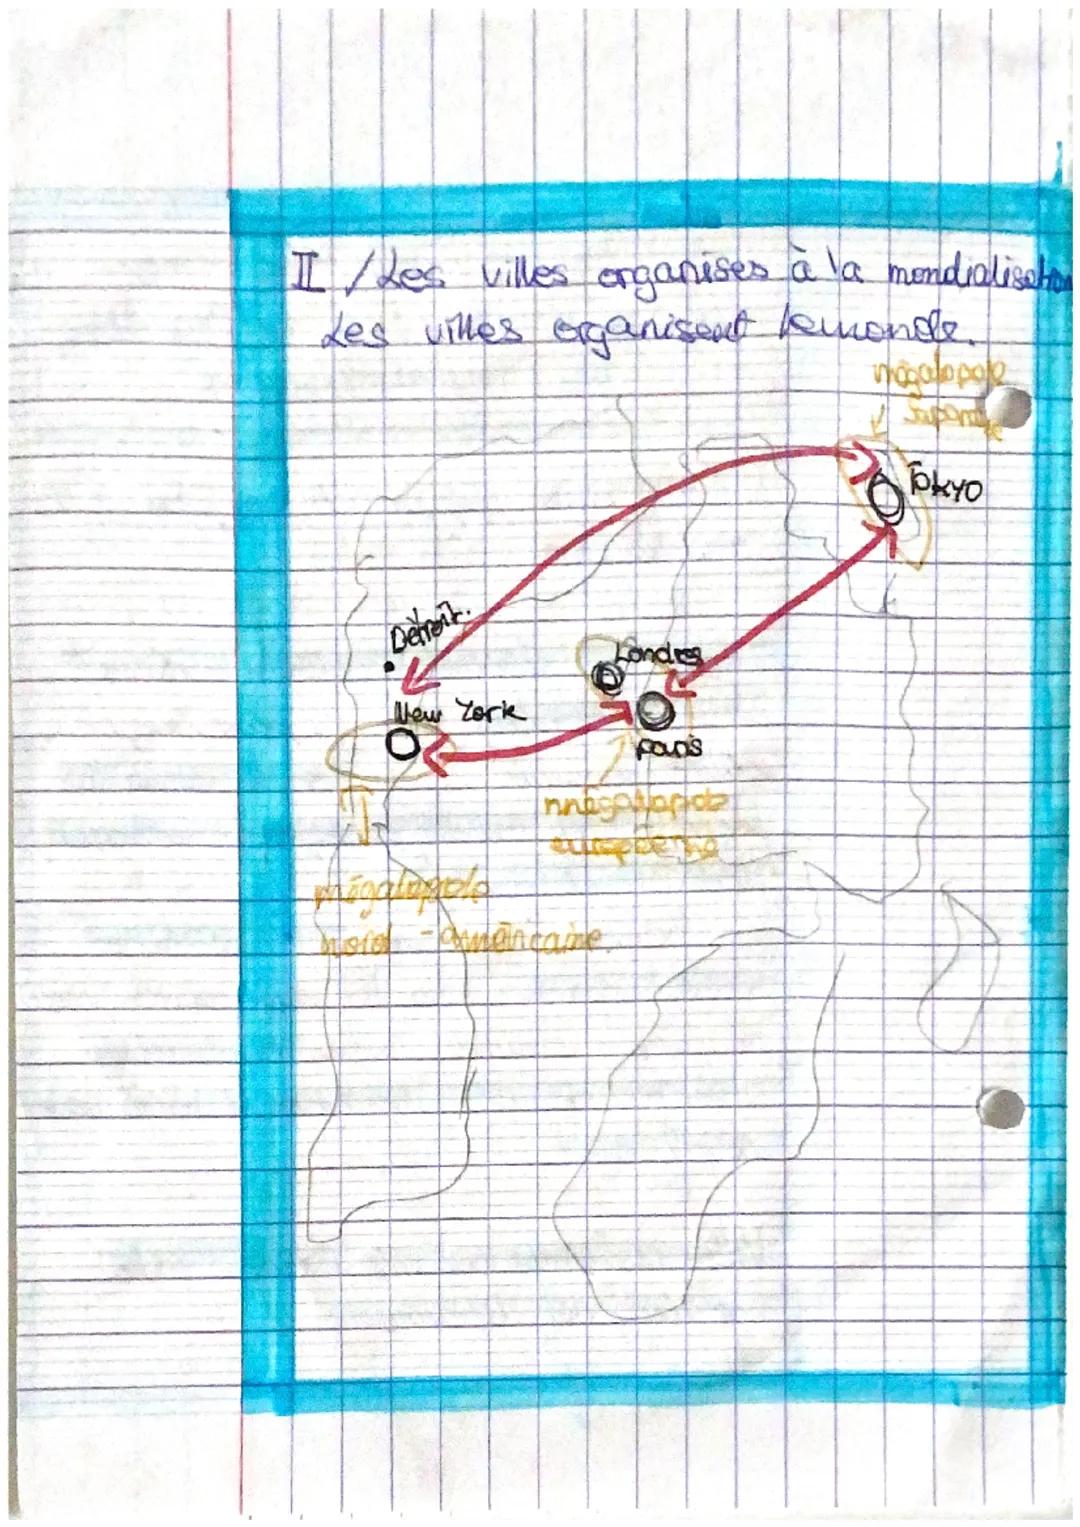 II / Les villes organises à la mondialisation
Les villes organisent le monde.
mégalopole
Japonaise
Tokyo
Détroit.
Londres
New York
Paris
mégalopole
européenne
mégalopole
nord-américaine